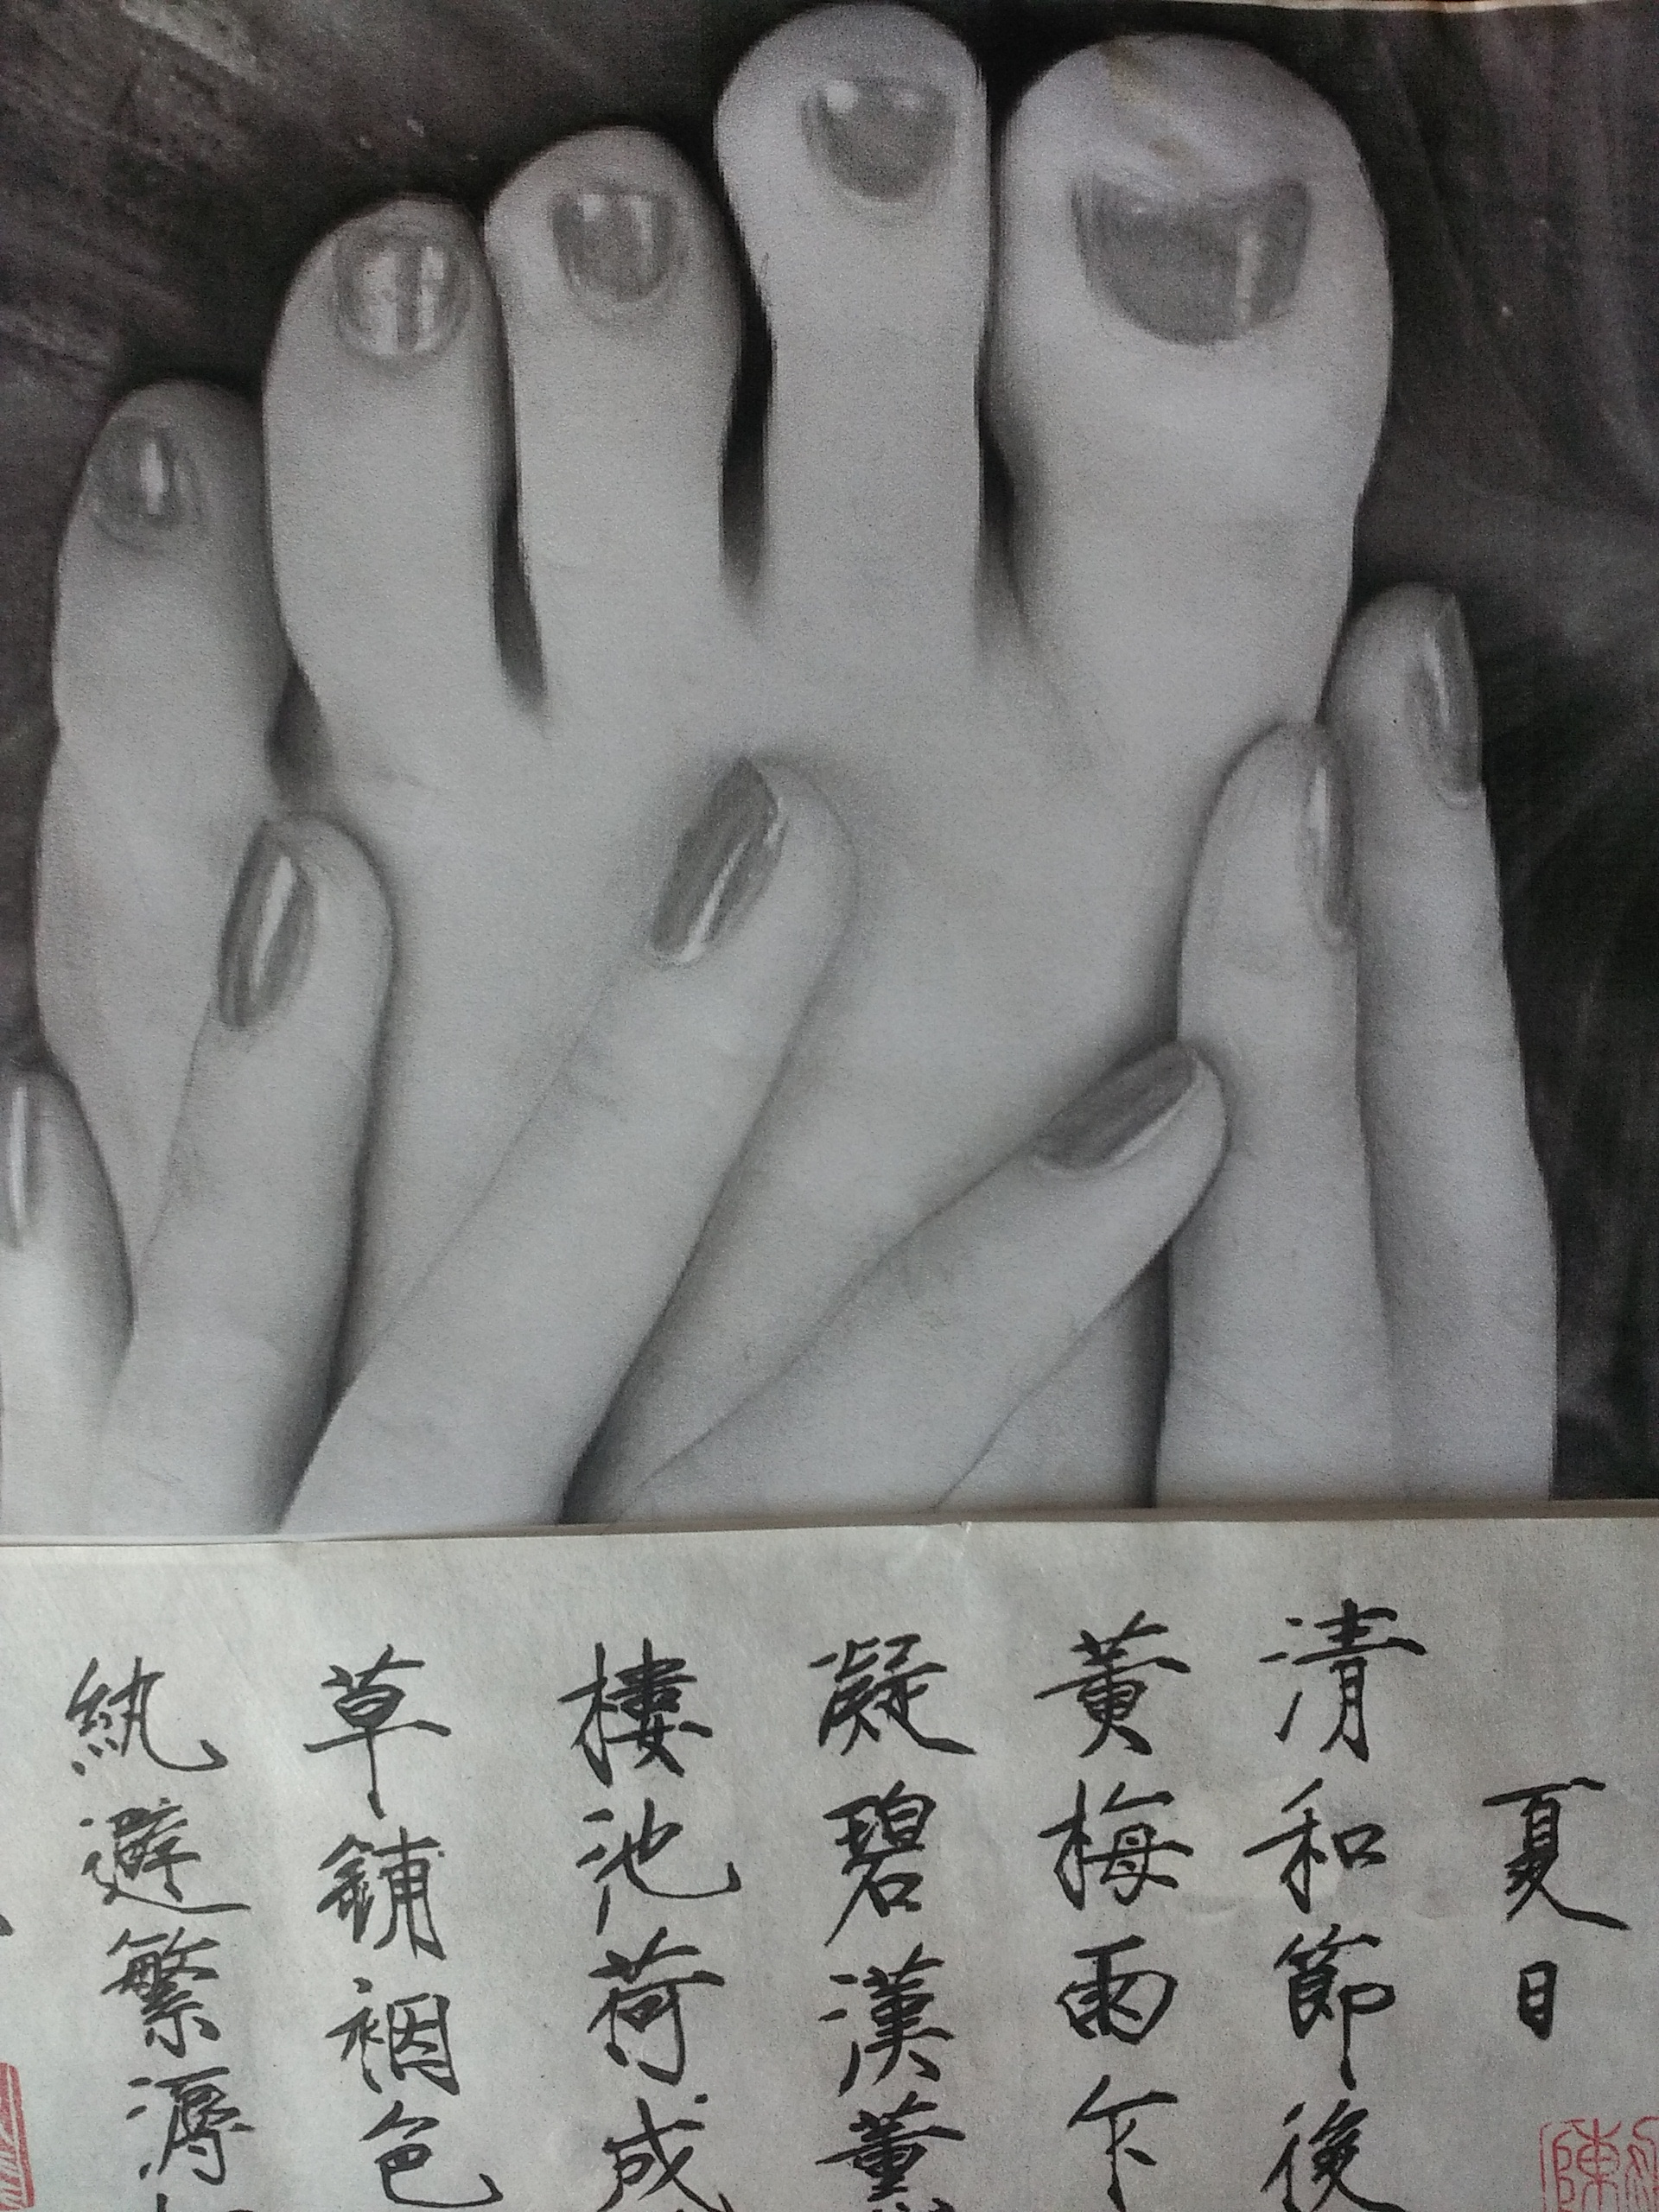 夏日
清和節後
黃梅雨乍
凝碧漢薰
樓池荷成
草鋪裀色
紈避繁溽
陳